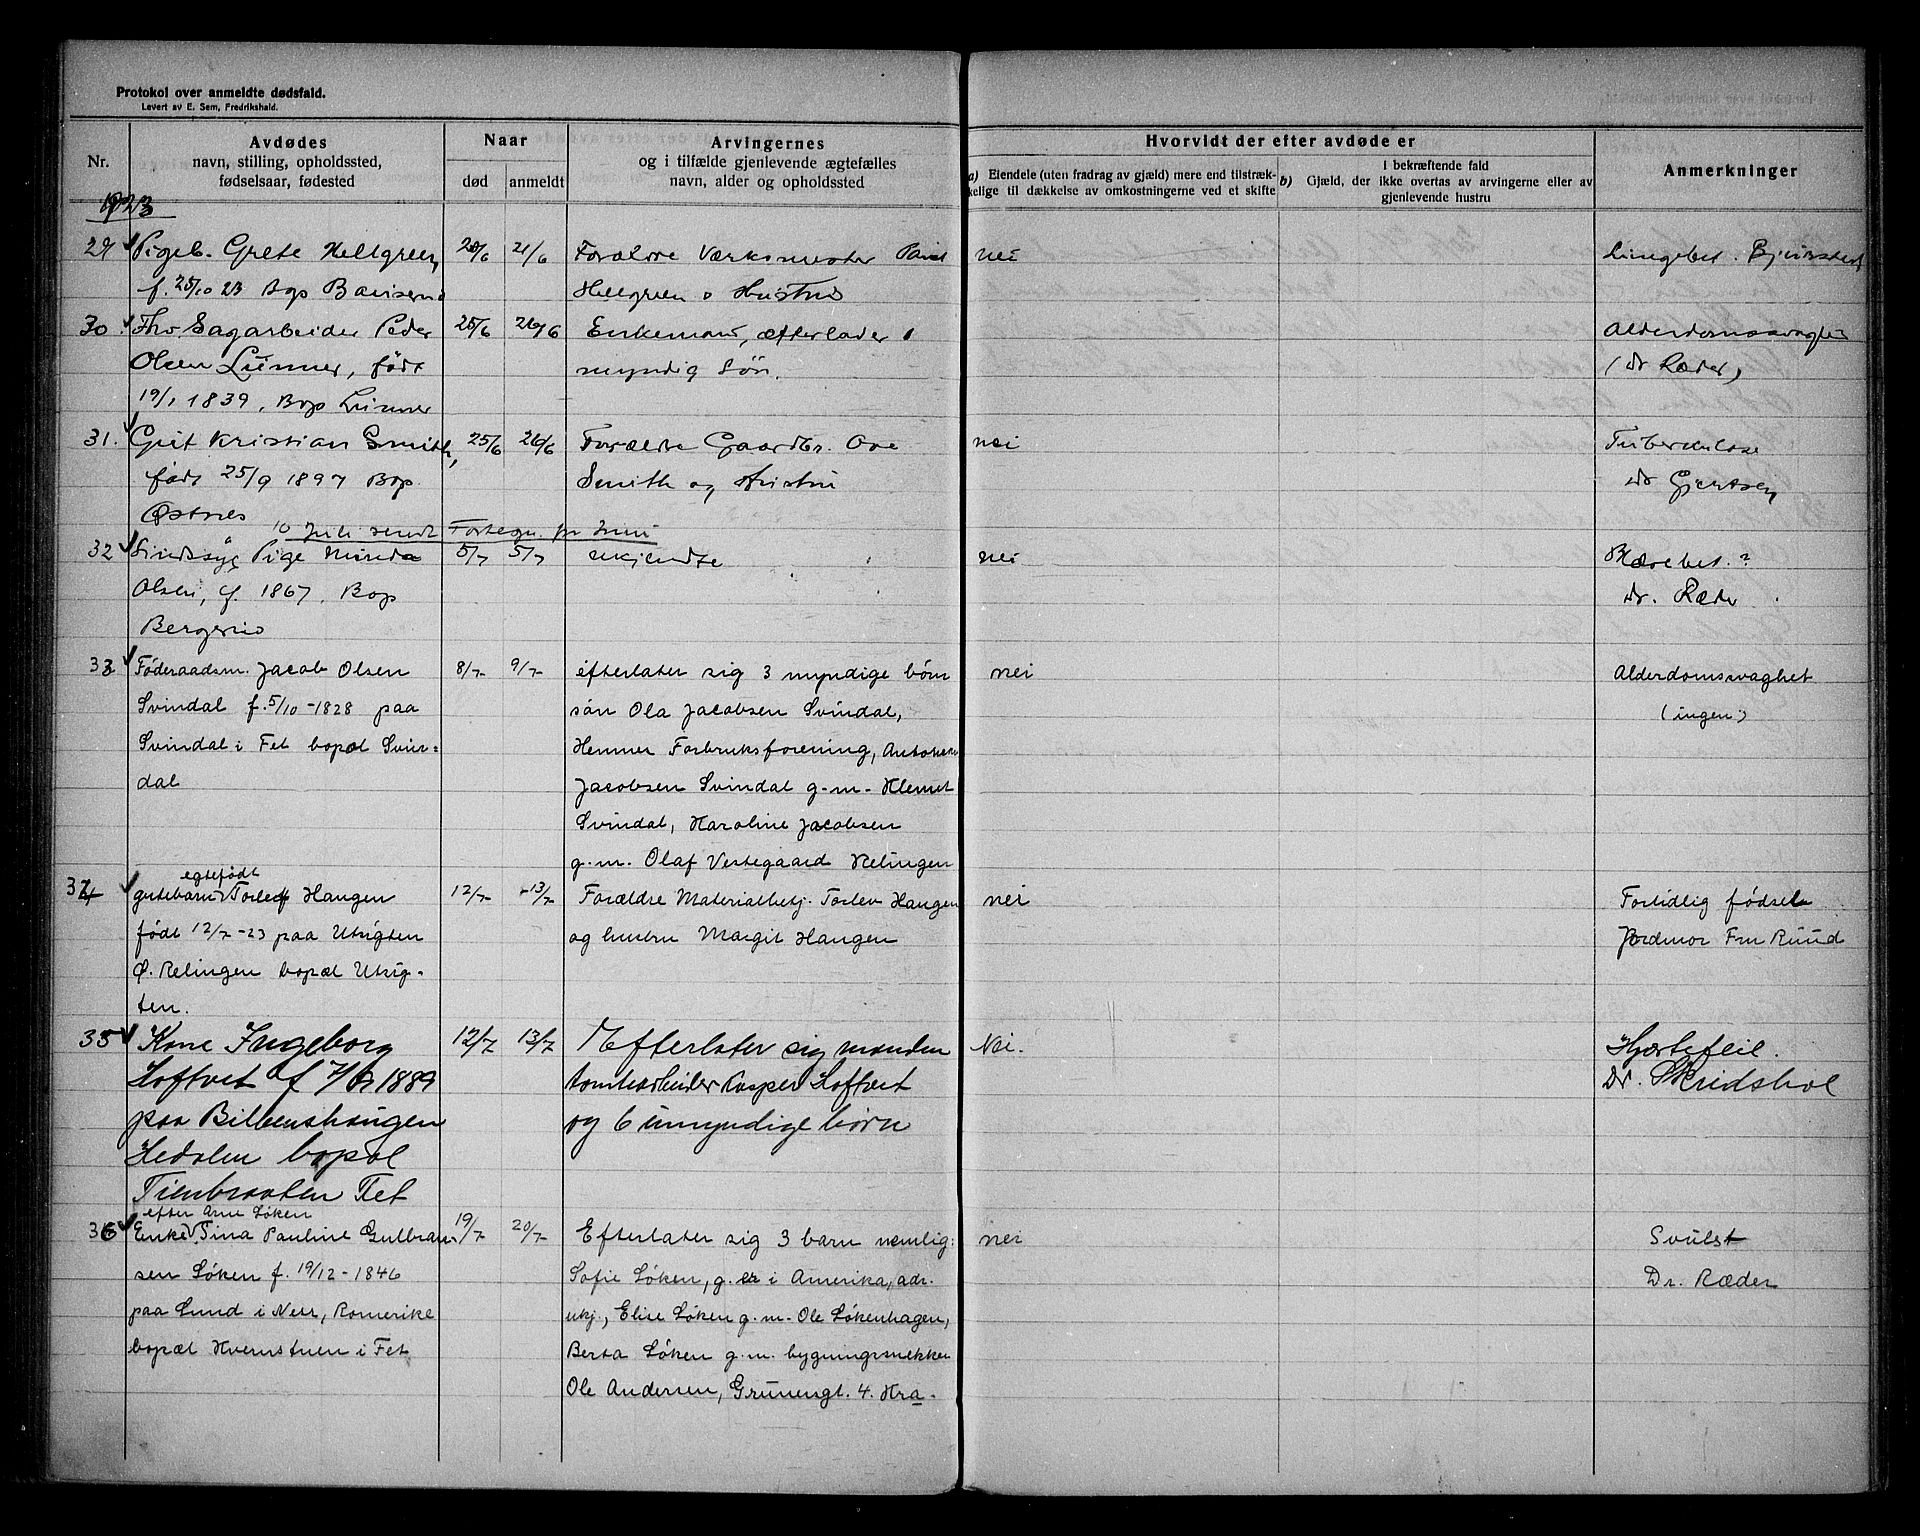 Protokol over anmeldte dødsfald.
Levert av E. Sem, Fredrikshald.
Nr.
Avdødes
navn, stilling, opholdssted,
fødselsaar, fødested
Naar
død
anmeldt
Arvingernes
og i tilfælde gjenlevende ægtefælles
navn, alder og opholdssted
Hvorvidt der efter avdøde er
a) Eiendele (uten fradrag av gjæld) mere end tilstræk-
kelige til dækkelse av omkostningerne ved et skifte
b) Gjæld, der
I bekræftende fald
ikke overtas av arvingerne eller av
gjenlevende hustru
Anmerkninger
1923
29 Pigeb. Grete Hellgreen,
f. 25/10 23 Bop
20/6 21/6
Forældre Værksmester
Hellgreen o Hustru
nei
Lungebet.
30. Fhv. Sagarbeider Peder
Olsen Lunner, født
19/1 1839, Bop Lunner
25/6 26/6
Enkemand, efterlader 1
myndig Søn.
Alderdomssvaghed
(Dr Ræder)
31. Gut Kristian Smith,
født 25/9 1897 Bop.
Østnes
25/6 26/6
Forældre Gaardbr. Ove
Smith og Hustru
nei
Tuberkulose
Dr Gjertsen
10 Juli sendt Fortegn. for Juni
32 Sindssyg Pige Minda
Olsen, f. 1867, Bop
5/7 5/7
ukjendte
nei
Blærebet. ?
Dr. Ræder
33 Føderaadsm. Jacob Olsen
Svindal f. 5/10-1828 paa
Svindal i Fet bopæl Svin-
dal
8/7 9/7
efterlater sig 3 myndige børn
søn Ola Jacobsen Svindal,
Henner Forbruksforening,
Jacobsen Svindal g.m. Klemet
Svindal, Karoline Jacobsen
g.m. Olaf Vestegaard Relingen
nei
Alderdomsvaghet
(ingen)
34 egtefødt
gutebarn Torleif Haugen
født 12/7-23 paa Utsigten
Ø. Relingen bopæl Utsig-
ten.
12/7 13/7
Forældre Materialbetj. Torlev Haugen
og hustru Margit Haugen
nei
Fortidlig fødsel
Jordmor Fru Ruud
35 Kone Ingeborg
Hoftvet f 1889
paa Bilbenshaugen
Hedalen bopæl
Tienbraaten Fet
12/7 13/7
Efterlater sig manden
tomtearbeider Kasper Hoftvet
og 6 umyndige børn
Nei.
Hjertefeil.
Dr. Skridshol
36 efter Arne Løken
Enke Tina Pauline Gulbran-
sen Løken f. 19/12-1846
paa Lund i Nes, Romerike
bopæl Hvemstuen i Fet
19/7 20/7
Efterlater sig 3 barn nemlig:
Sofie Løken, g. er i Amerika, adr.
ukj., Elise Løken g.m. Ole Løkenhagen,
Berta Løken g.m. bygningssnekker
Ole Andersen, Grünengt. 4. Kra.
nei
Svulst
Dr. Ræder